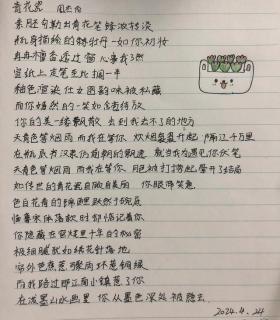 青花瓷 周杰伦
素胚勾勒出青花笔锋浓转淡
瓶身描绘的牡丹一如你初妆
冉冉檀香透过窗心事我了然
宣纸上走笔至此搁一半
釉色渲染仕女图韵味被私藏
而你嫣然的一笑如含苞待放
你的美一缕飘散 去到我去不了的地方
天青色等烟雨 而我在等你 炊烟袅袅升起 隔江千万里
在瓶底书汉隶仿前朝的飘逸 就当我为遇见你伏笔
天青色等烟雨 而我在等你 月色被打捞起 晕开了结局
如传世的青花瓷自顾自美丽 你眼带笑意
色白花青的锦鲤跃然于碗底
临摹宋体落款时却惦记着你
你隐藏在窑烧里千年的秘密
极细腻犹如绣花针落地
帘外芭蕉惹骤雨门环惹铜绿
而我路过那江南小镇惹了你
在泼墨山水画里 你从墨色深处被隐去
2024.4.24